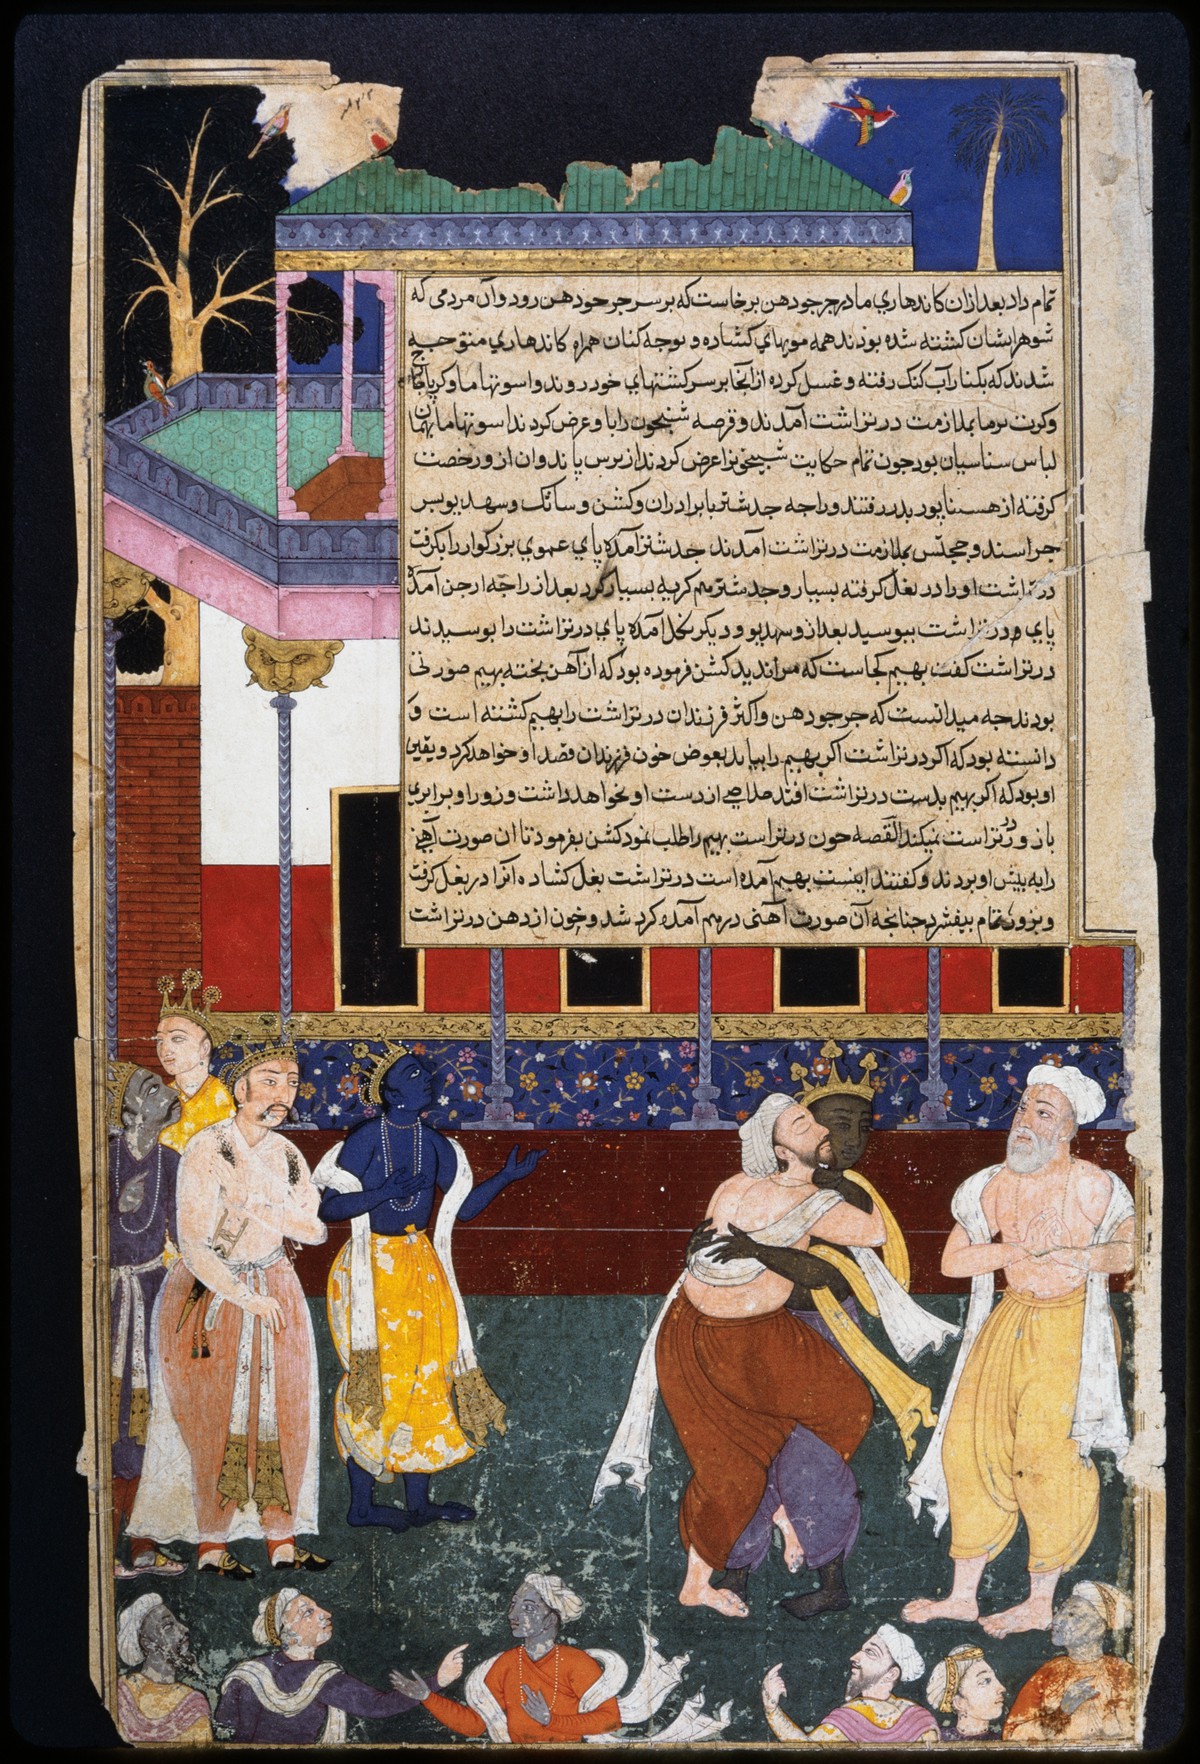 تمام داد بعد ازان کاندهاري مادر جرجودهن برخاست که بر سر جرجودهن رود و آن مردمی که
شوهر ایشان کشته شده بودند همه مویهاي کشاده و نوحه کنان همراه کاندهاري متوجه
شدند که بکنار آب کنک رفته و غسل کرده از آنجا بر سر کشتهاي خود روند و اسوتهاما و کرپاچارج
و کرت برما بملازمت درتراشت آمدند و قرصه شبیخون را با و عرض کردند اسوتهاما
لباس سناسیان بود چون تمام حکایت شبیخون را عرض کردند از ترس پاندوان از و رخصت
کرفته از هستناپور بدر رفتند و راجه جدشتر با برادران و کشن و ساتک و سهدیو پسر
جراسند و ججتس بملازمت درتراشت آمدند جدشتر آمده پاي عموي بزرکوار را بکرفت
درتراشت او را در بغل کرفته بسیار و جدشتر هم کریه بسیار کرد بعد از راجه ارجن آمده
پاي درتراشت ببوسید بعد از و سهدیو و دیکر نکل آمده پاي درتراشت را بوسیدند
درتراشت کفت بهیم کجاست که مر اندید کشن فرموده بود که از آهن پخته بهیم صورتی
بودند چه میدانست که جرجودهن و اکثر فرزندان درتراشت را بهیم کشته است و
دانسته بود که اکر درتراشت اکر بهیم را بیابد بعوض خون فرزندان قصد او خواهد کرد و یقین
او بود که اکر بهیم بدست درتراشت افتد خلاصی از دست او نخواهد داشت و زور او برابري
با زور درتراست نمیکند القصه چون درتراست بهیم را طلب نمود کشن بفرمود تا ان صورت آهنی
را به پیش او بردند و کفتند اینست بهیم آمده است درتراشت بغل کشاده آنرا در بغل کرفت
و بزور تمام بیفشرد چنانچه آن صورت آهنی درهم آمده کرد شد و خون از دهن درتراشت